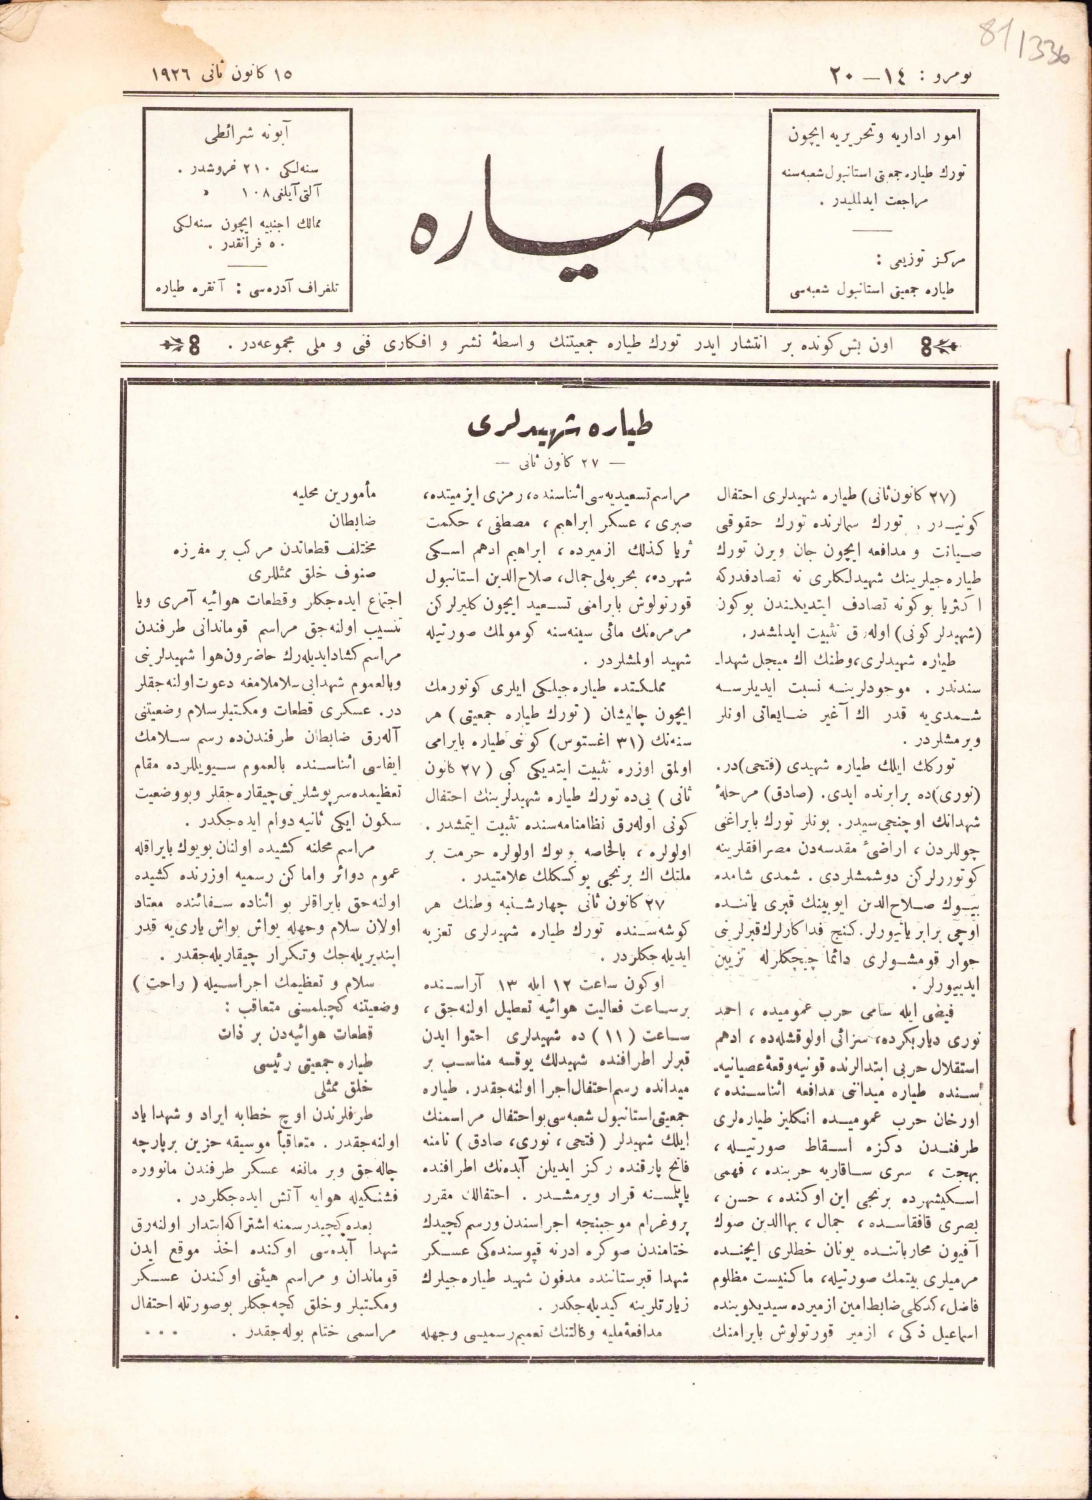 81/1336
نومرو : ١٤ — ٢٠
١٥ كانون ثانى ١٩٢٦
امور اداريه وتحريريه ايچون
تورك طياره جمعيتى استانبول شعبه‌سنه
مراجعت ايدلمليدر .
مركز توزيعى :
طياره جمعيتى استانبول شعبه‌سى
طياره
آبونه شرائطى
سنه‌لكى ٢١٠ غروشدر .
آلتى آيلغى ١٠٨ »
ممالك اجنبيه ايچون سنه‌لكى
٥٠ فرانقدر .
تلغراف آدره‌سى : آنقره طياره
اون بش كونده بر انتشار ايدر تورك طياره جمعيتنك واسطهٔ نشر و افكارى فنى و ملى مجموعه‌در .
طياره شهيدلرى
— ٢٧ كانون ثانى —
(٢٧ كانون ثانى) طياره شهيدلرى احتفال
كونيدر . تورك سمالرنده تورك حقوقى
صيانت و مدافعه ايچون جان ويرن تورك
طياره‌جيلرينك شهيدلكلرى نه تصادفدركه
اكثريا بوكونه تصادف ايتديكندن بوكون
(شهيدلر كونى) اوله‌رق تثبيت ايدلمشدر.
طياره شهيدلرى، وطنك اك مبجل شهدا-
سندندر . موجودلرينه نسبت ايديلرسه
شمدى‌يه قدر اك آغير ضايعاتى اونلر
ويرمشلردر .
توركك ايلك طياره شهيدى (فتحى)در.
(نورى)ده برابرنده ايدى. (صادق) مرحلهٔ
شهدانك اوچنجى‌سيدر. بونلر تورك بايراغنى
چوللردن ، اراضئ مقدسه‌دن مصر افقلرينه
كوتوررلركن دوشمشلردى . شمدى شامده
بيوك صلاح‌الدين ايوبينك قبرى ياننده
اوچى برابر ياتيورلر. كنج فداكارلرك قبرلرينى
جوار قومشولرى دائما چيچكلرله تزيين
ايدييورلر .
فيضى ايله سامى حرب عموميده ، احمد
نورى دياربكرده، سزائى اولوقشله‌ده ، ادهم
استقلال حربى ابتدالرنده قونيه وقعهٔ عصيانيه-
سنده طياره ميدانى مدافعه اثناسنده ،
اورخان حرب عموميده انكليز طياره‌لرى
طرفندن دكزه اسقاط صورتيله ،
بهجت ، سرى ساقاريه حربنده ، فهمى
اسكيشهرده برنجى اين اوكنده ، حسن ،
بصرى قافقاسده ، جمال ، بهاالدين صوك
آفيون محارباتنده يونان خطلرى ايچنده
مرميلرى بيتمك صورتيله، ماكنيست مظلوم
فاضل، كدكلى ضابط امين ازميرده سيديكوينده
اسماعيل ذكى ، ازمير قورتولوش بايرامنك
مراسم تسعيديه‌سى اثناسنده، رمزى ايزميتده،
صبرى ، عسكر ابراهيم ، مصطفى ، حكمت
ثريا كذلك ازميرده ، ابراهيم ادهم اسكى
شهرده، بحريه‌لى جمال، صلاح‌الدين استانبول
قورتولوش بايرامنى تسعيد ايچون كليرلركن
مرمره‌نك مائى سينه‌سنه كومولمك صورتيله
شهيد اولمشلردر .
مملكتده طياره‌جيلكى ايلرى كوتورمك
ايچون چاليشان (تورك طياره جمعيتى) هر
سنه‌نك (٣١ اغستوس) كونى طياره بايرامى
اولمق اوزره تثبيت ايتديكى كبى (٢٧ كانون
ثانى ) يى‌ده تورك طياره شهيدلرينك احتفال
كونى اوله‌رق نظامنامه‌سنده تثبيت ايتمشدر .
اولولره ، بالخاصه بويوك اولولره حرمت بر
ملتك اك برنجى يوكسكلك علامتيدر .
٢٧ كانون ثانى چهارشنبه وطنك هر
كوشه‌سنده تورك طياره شهيدلرى تعزيه
ايديله‌جكلردر .
اوكون ساعت ١٢ ايله ١٣ آراسنده
برساعت فعاليت هوائيه تعطيل اولنه‌جق ،
ساعت (١١) ده شهيدلرى احتوا ايدن
قبرلر اطرافنده شهيدلك يوقسه مناسب بر
ميدانده رسم احتفال اجرا اولنه‌جقدر. طياره
جمعيتى استانبول شعبه‌سى بو احتفال مراسمنك
ايلك شهيدلر (فتحى، نورى، صادق) نامنه
فاتح پارقنده ركز ايديلن آبده‌نك اطرافنده
ياپلمسنه قرار ويرمشدر . احتفالك مقرر
پروغرام موجبنجه اجراسندن ورسم كچيدك
ختامندن صوكره ادرنه قپوسنده‌كى عسكر
شهدا قبرستاننده مدفون شهيد طياره‌جيلرك
زيارتلرينه كيديله‌جكدر .
مدافعهٔ مليه وكالتنك تعميم رسميسى وجهله
مأمورين محليه
ضابطان
مختلف قطعاتدن مركب بر مفرزه
صنوف خلق ممثللرى
اجتماع ايده‌جكلر وقطعات هوائيه آمرى ويا
تنسيب اولنه‌جق مراسم قوماندانى طرفندن
مراسم كشاد ايديله‌رك حاضرون هوا شهيدلرينى
وبالعموم شهدايى سلاملامغه دعوت اولنه‌جقلر
در. عسكرى قطعات ومكتبلر سلام وضعيتنى
آله‌رق ضابطان طرفندن‌ده رسم سلامك
ايفاسى اثناسنده بالعموم سيويللرده مقام
تعظيمده سرپوشلرينى چيقاره‌جقلر وبووضعيت
سكون ايكى ثانيه دوام ايده‌جكدر .
مراسم محلنه كشيده اولنان بويوك بايراقله
عموم دوائر واماكن رسميه اوزرنده كشيده
اولنه‌جق بايراقلر بو اثناده سفائنده معتاد
اولان سلام وجهله يواش يواش يارى‌يه قدر
اينديريله‌جك وتكرار چيقاريله‌جقدر .
سلام و تعظيمك اجراسيله ( راحت )
وضعيتنه كچيلمسنى متعاقب :
قطعات هوائيه‌دن بر ذات
طياره جمعيتى رئيسى
خلق ممثلى
طرفلرندن اوچ خطابه ايراد و شهدا ياد
اولنه‌جقدر . متعاقباً موسيقه حزين برپارچه
چاله‌جق وبر مانغه عسكر طرفندن مانووره
فشنكيله هوايه آتش ايده‌جكلردر .
بعده كچيدرسمنه اشتراكه ابتدار اولنه‌رق
شهدا آبده‌سى اوكنده اخذ موقع ايدن
قوماندان و مراسم هيئتى اوكندن عسكر
ومكتبلر وخلق كچه‌جكلر بوصورتله احتفال
مراسمى ختام بوله‌جقدر . ...